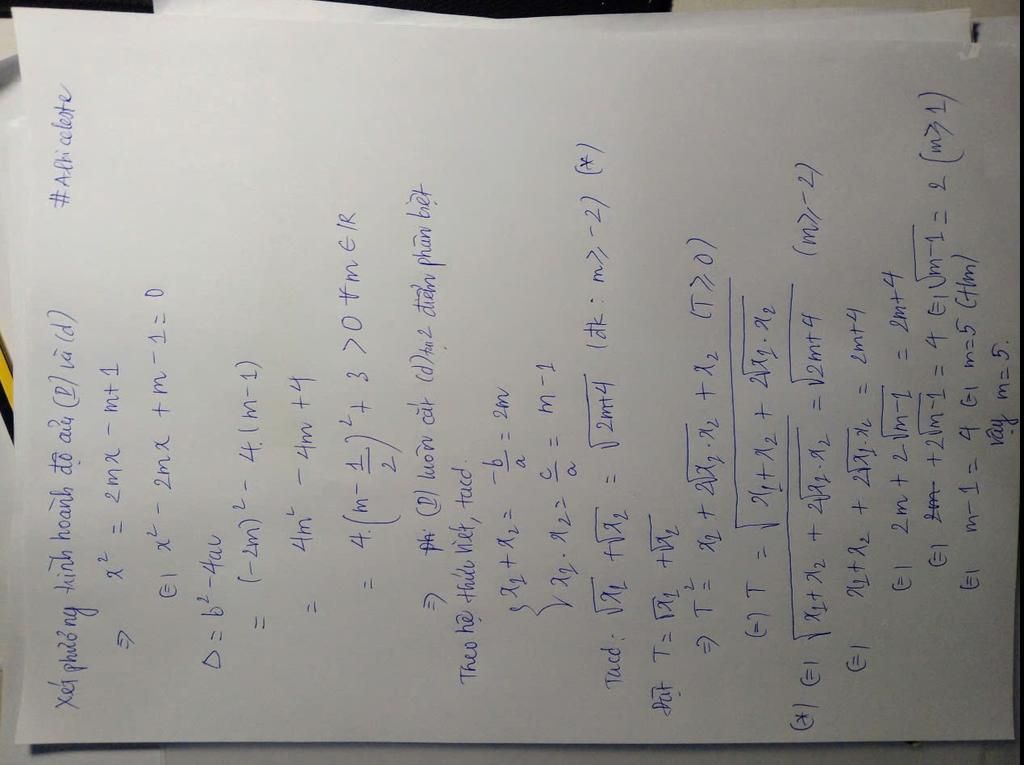 #Alticeleste
Xét phương trình hoành độ của (P) và (d)
⇒ x² = 2mx - m+1
(=) x² - 2mx + m - 1 = 0
Δ = b² - 4ac
= (-2m)² - 4.(m-1)
= 4m² - 4m + 4
= 4.(m - 1/2)² + 3 > 0 ∀ m ∈ R
⇒ (P) luôn cắt (d) tại 2 điểm phân biệt
Theo hệ thức viét, tacó
{ x₁ + x₂ = -b/a = 2m
x₁ . x₂ = c/a = m - 1
Tacó: √x₁ + √x₂ = √2m+4 (đk: m ≥ -2) (*)
Đặt T = √x₁ + √x₂
⇒ T² = x₁ + 2√x₁.x₂ + x₂ (T ≥ 0)
(=) T = √x₁ + x₂ + 2√x₁.x₂
(*) (=) √x₁ + x₂ + 2√x₁.x₂ = √2m+4 (m ≥ -2)
(=) x₁ + x₂ + 2√x₁.x₂ = 2m+4
(=) 2m + 2√m-1 = 2m+4
(=) 2m + 2√m-1 = 4 (=) √m-1 = 2 (m ≥ 1)
(=) m-1 = 4 (=) m=5 (t/m)
vậy m=5.